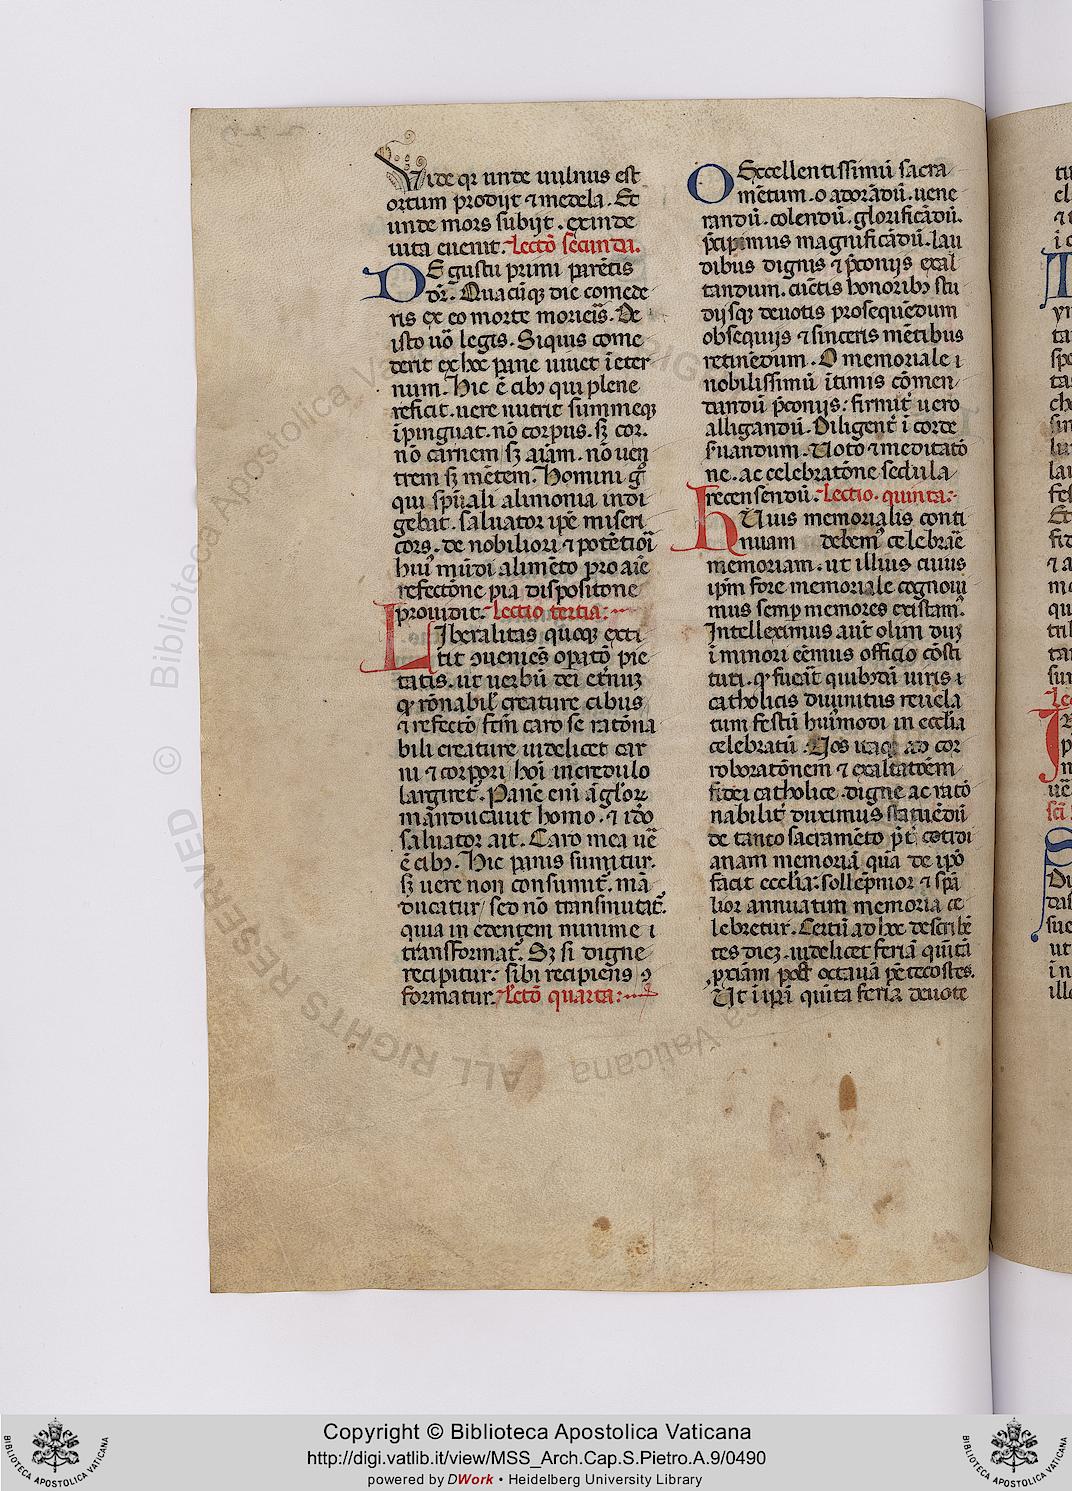 Vide qr unde uulnus est
ortum prodijt ⁊ medela. Et
unde mors subijt. exinde
uita euenit. Lectō secunda.
DE gustu primi parētis
dr̄. Quacūq; die comede
ris ex eo morte morieīs. De
isto uō legis. Siquis come
derit ex hoc pane uiuet ī eter
num. Hic ē cibꝫ qui plene
reficit. uere nutrit summeq;
īpinguat. nō corpus. sꝫ cor.
nō carnem sꝫ aīam. nō uen
trem sꝫ mētem. Homini gͦ
qui spūali alimonia indi
gebat. saluator ipē miseri
cors. de nobiliori ⁊ potētiōi
huiꝰ mūdi alimēto pro aīe
refectōne pia dispositone
prouidit. Lectio tertia.
Liberalitas quoqꝫ exti
tit ꝯueniēs oꝑatō pie
tatis. ut uerbū dei et̄nuꝫ
qͥ rōnabil' creature cibus
⁊ refectō fc̄m caro se ratōna
bili creature uidelicet car
ni ⁊ corpori hoī incredulo
largiret᷑. Panē enī āgloꝝ
manducauit homo. ⁊ ido
saluator ait. Caro mea uē
ē cibꝫ. Hic panis sumitur.
sꝫ uere non consumit᷑. mā
ducatur, sed nō transmutat᷑.
quia in edentem minime ī
transformat᷑. Sꝫ si digne
recipitur: sibi recipiens ꝯ
formatur. Lectō quarta:
O Excellentissimū sacra
mētum. o adorādū. uene
randū. colendū. glorificādū.
p̄cipimus magnificādū. lau
dibus dignis ⁊ p̄conijs exal
tandum. cūctis honoribꝫ stu
dijsqꝫ deuotis prosequēdum
obsequijs ⁊ sinceris mētibus
retinēdum. O memoriale ī
nobilissimū ītimis cōmen
dandū p̄conijs: firmit᷑ uero
alligandū. Diligent᷑ ī corde
s̄uandum. Uoto ⁊ meditatō
ne. ac celebratōne sedula
recensendū. Lectio. quinta:
Huius memorialis conti
nuam debemꝰ celebrāe
memoriam. ut illius cuius
ip̄m fore memoriale cognoui
mus semꝑ memores existamꝰ.
Intelleximus aut̄ olim duꝫ
ī minori eēmus officio cōsti
tuti. qͥ fuerāt quibꝫdā uiris ī
catholicis diuinitus reuela
tum festū huiꝰmodi in ecclīa
celebratū. Nos itaqꝫ ad cor
roboratōnem ⁊ exaltatōem
fidei catholice. digne ac ratō
nabilit᷑ duximus statuēdū
de tanto sacramēto p̄t᷑ cotidi
anam memoriā quā de ipō
facit ecclīa: sollēpnior ⁊ spā
lior annuatim memoria ce
lebretur. Certū ad hoc describē
tes dieꝫ. uidelicet feriā quītā
prīām post octauā pētecostes.
Ut ī ipā quīta feria deuote
Copyright © Biblioteca Apostolica Vaticana
http://digi.vatlib.it/view/MSS_Arch.Cap.S.Pietro.A.9/0490
powered by DWork • Heidelberg University Library